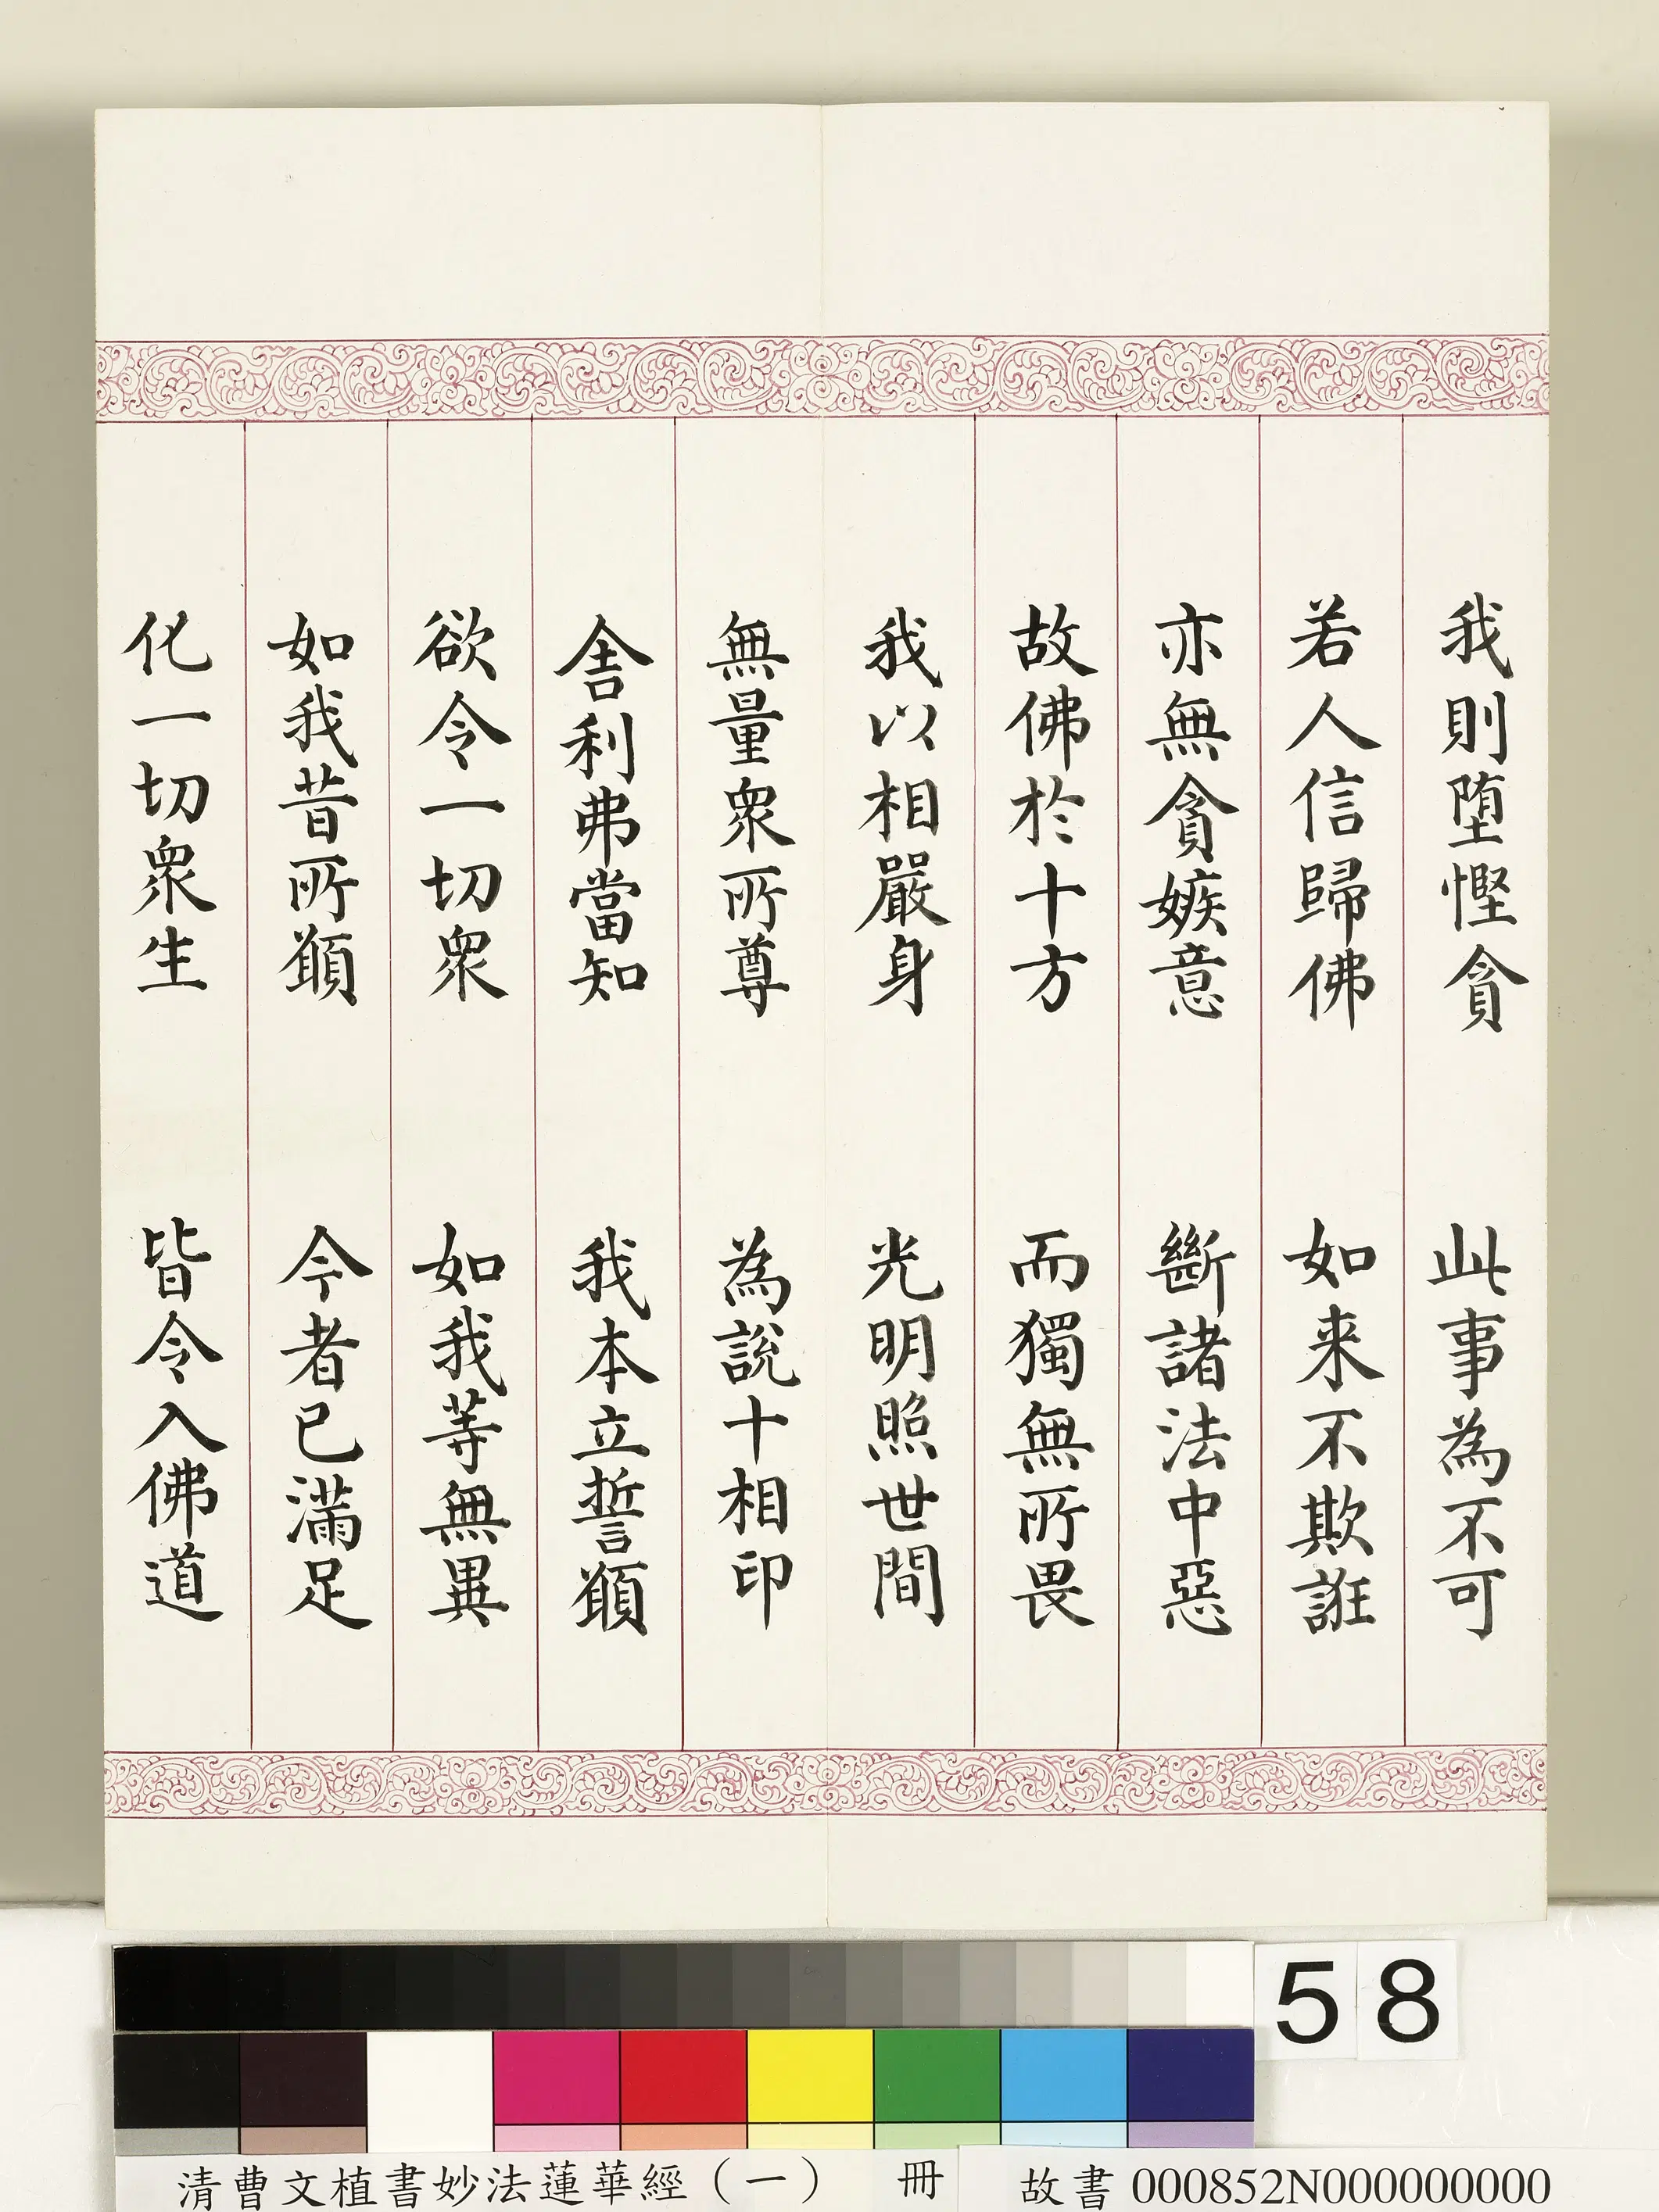 我則墮慳貪　此事為不可
若人信歸佛　如来不欺誑
亦無貪嫉意　斷諸法中惡
故佛於十方　而獨無所畏
我以相嚴身　光明照世間
無量衆所尊　為說十相印
舎利弗當知　我本立誓願
欲令一切衆　如我等無異
如我昔所願　今者已滿足
化一切衆生　皆令入佛道
58
清曹文植書妙法蓮華經（一）　冊　故書000852N000000000